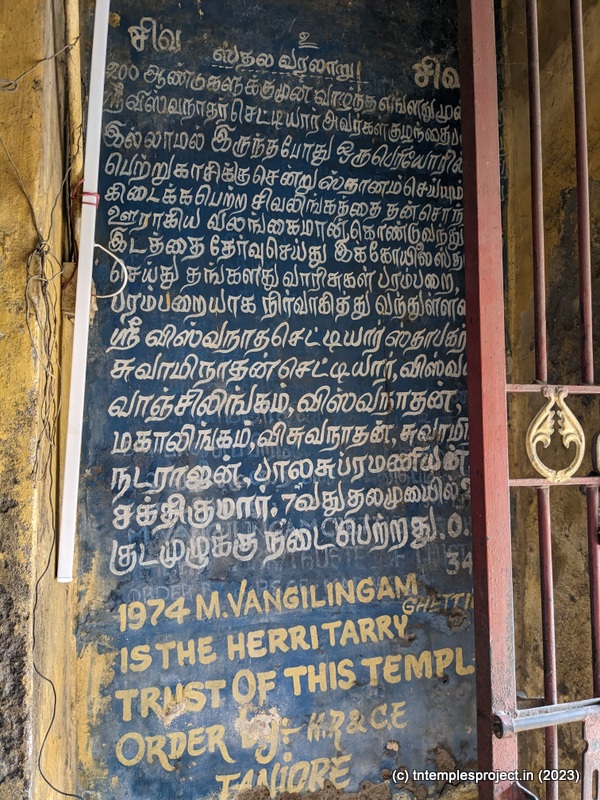 சிவ உ சிவ
ஸ்தல வரலாறு
200 ஆண்டுகளுக்குமுன் வாழ்ந்த எங்களது
ஸ்ரீ விஸ்வநாதர் செட்டியார் அவர்கள் குழந்தைப்
இல்லாமல் இருந்தபோது ஒருபெரியோரின்
பெற்று காசிக்கு சென்று ஸ்நானம் செய்யும்
கிடைக்கபெற்ற சிவலிங்கத்தை தன் சொந்
ஊராகிய வலங்கைமான் கொண்டுவந்து
இடத்தை தேர்வு செய்து இக்கோயில் ஸ்தா
செய்து தங்களது வாரிசுகள் பரம்பரை,
பரம்பரையாக நிர்வாகித்து வந்துள்ளன
ஸ்ரீ விஸ்வநாதசெட்டியார் ஸ்தாபதர்
சுவாமிநாதன் செட்டியார், விஸ்வ
வாஞ்சிலிங்கம், விஸ்வநாதன்,
மகாலிங்கம், விசுவநாதன், சுவாமி
நடராஜன், பாலசுப்ரமணியன்
சக்திகுமார். 7வது தலமுயைில்,
குடமுழுக்கு நடை பெற்றது.
1974 M. VANGILINGAM
GHETTI
IS THE HERRITARRY
TRUST OF THIS TEMPL
ORDER By:- H.R & C.E
TANJORE
(c) tntemplesproject.in (2023)